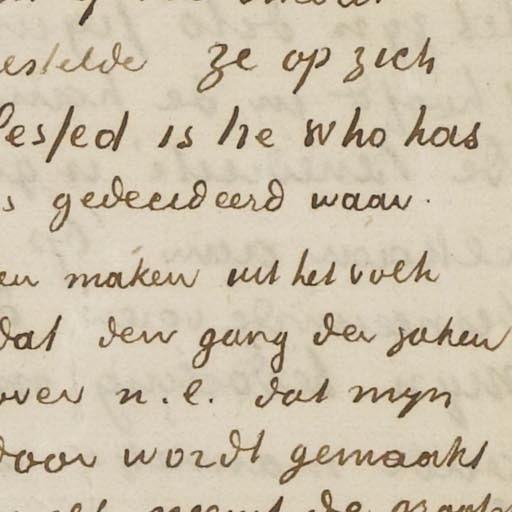 estelde ze op zich
lessed is he who has
s gedecideerd waar.
en maken uit het volk
dat den gang der zaken
over n.l. dat myn
door wordt gemaakt